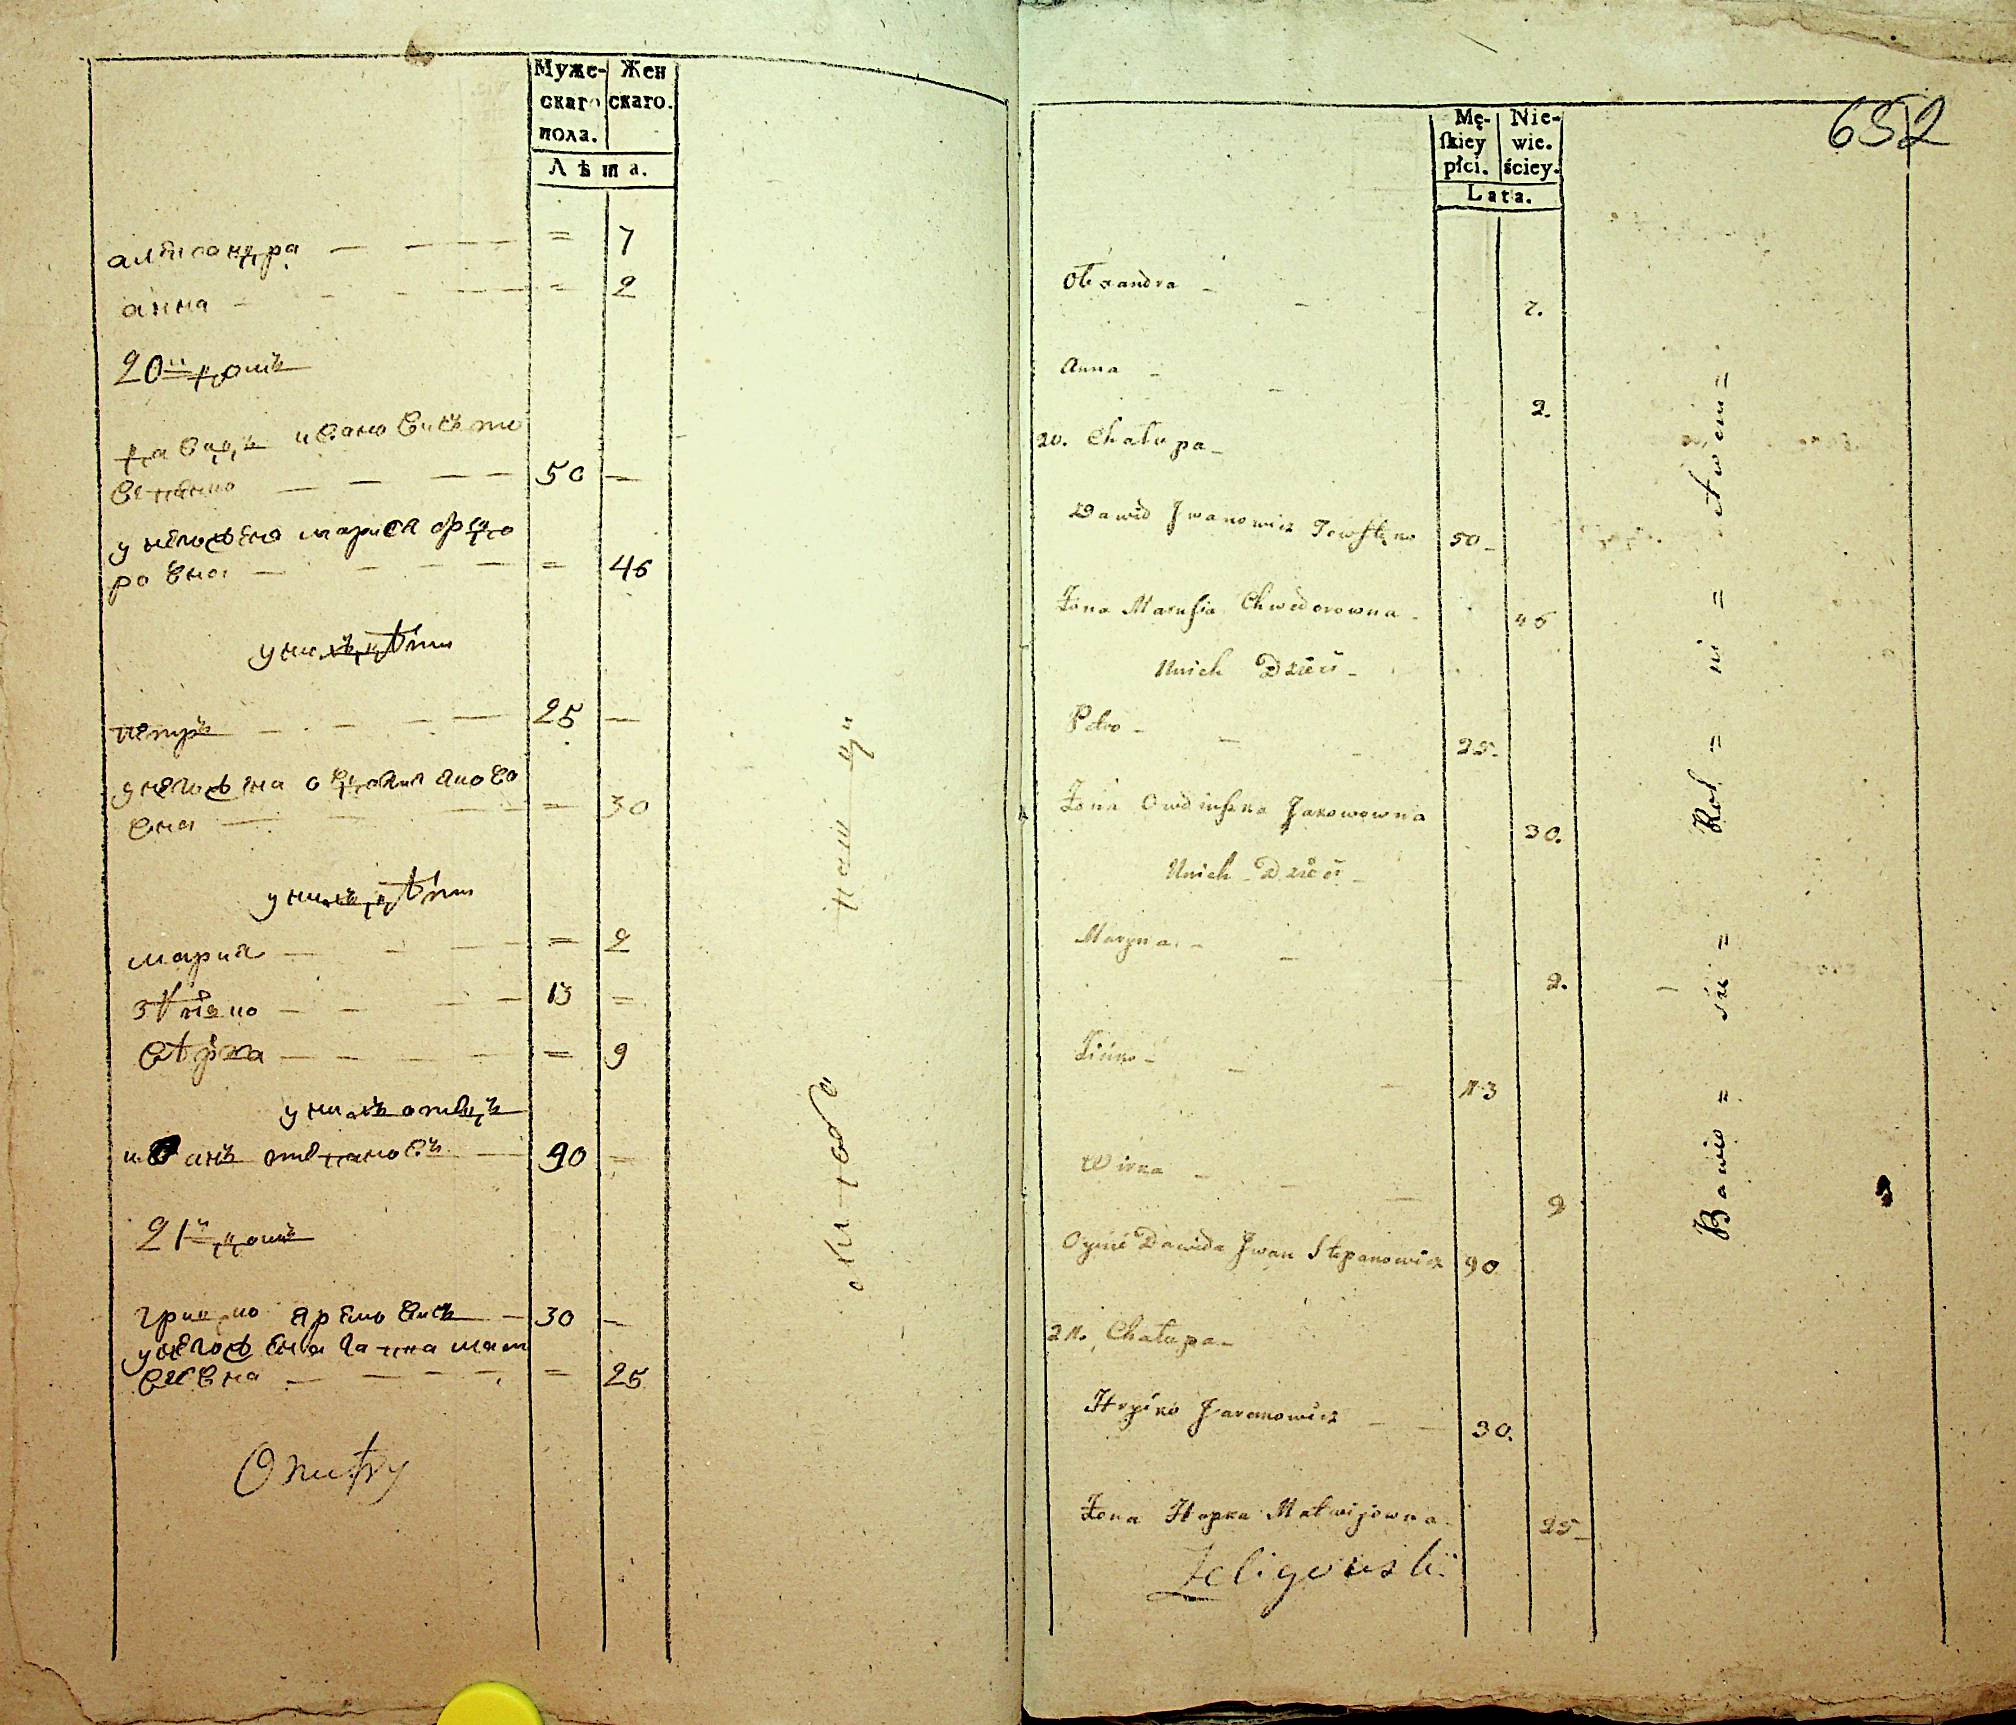 Муже-
скаго
пола.
Жен
скаго.
Лѣта.
александра — — — = 7
анна — — — = 2
20й домъ
давидъ ивановичъ те
— — — 50 —
у него жена марися федо
ровна — — — = 46
у нихъ дѣти
петръ — — — 25 —
у него жена овдокия яково
вна — — — = 30
у нихъ дѣти
мария — — — = 2
— — — 13 =
вѣрка — — — = 9
у нихъ отецъ
иванъ степановъ — 90 —
21й домъ
грицко яремовичъ — 30 —
у него жена гапка мат
веевна — — — = 25
652
Mę-
skiey
płci.
Nie-
wie.
ściey.
Lata.
Olexandra - 7.
Anna - 2.
20. Chałupa -
Dawid Jwanowicz 50 -
Żona Marysia Chwedorowna - 46
Unich Dzieci -
Petro - 25.
Żona Jakowowna 30.
Unich Dzieci -
Maryna - 2.
13
Wirka - 9
Oyciec Dawida Jwan Stepanowicz 90
21. Chałupa -
Hryćko Jaremowicz - 30.
Żona Hapka Matwijowna - 25 -
Żeligowski